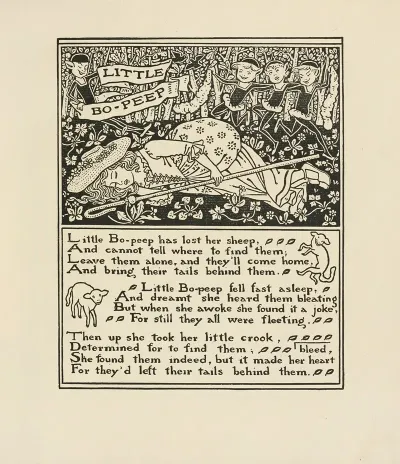 LITTLE
BO-PEEP
Little Bo-peep has lost her sheep,
And cannot tell where to find them;
Leave them alone, and they'll come home,
And bring their tails behind them.
Little Bo-peep fell fast asleep,
And dreamt she heard them bleating
But when she awoke she found it a joke,
For still they all were fleeting.
Then up she took her little crook,
Determined for to find them; bleed,
She found them indeed, but it made her heart
For they'd left their tails behind them.